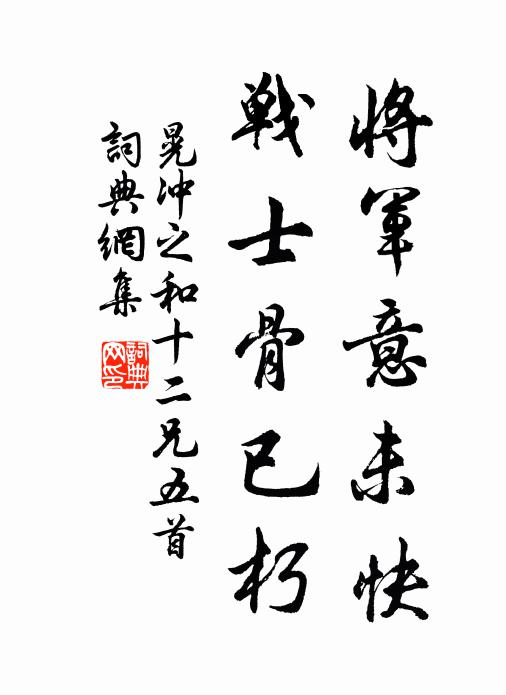 將軍意未快
戰士骨已朽
晃沖之和十二兄五首
詞典網集
詞典網印